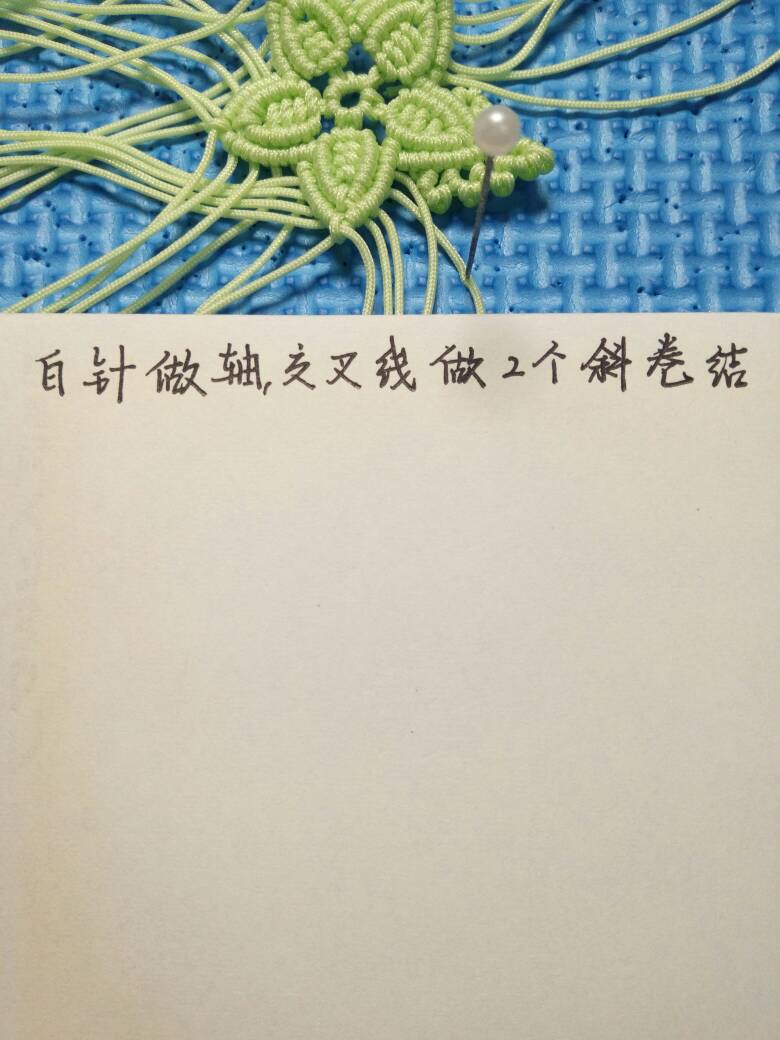 白针做轴,交叉线做2个斜卷结